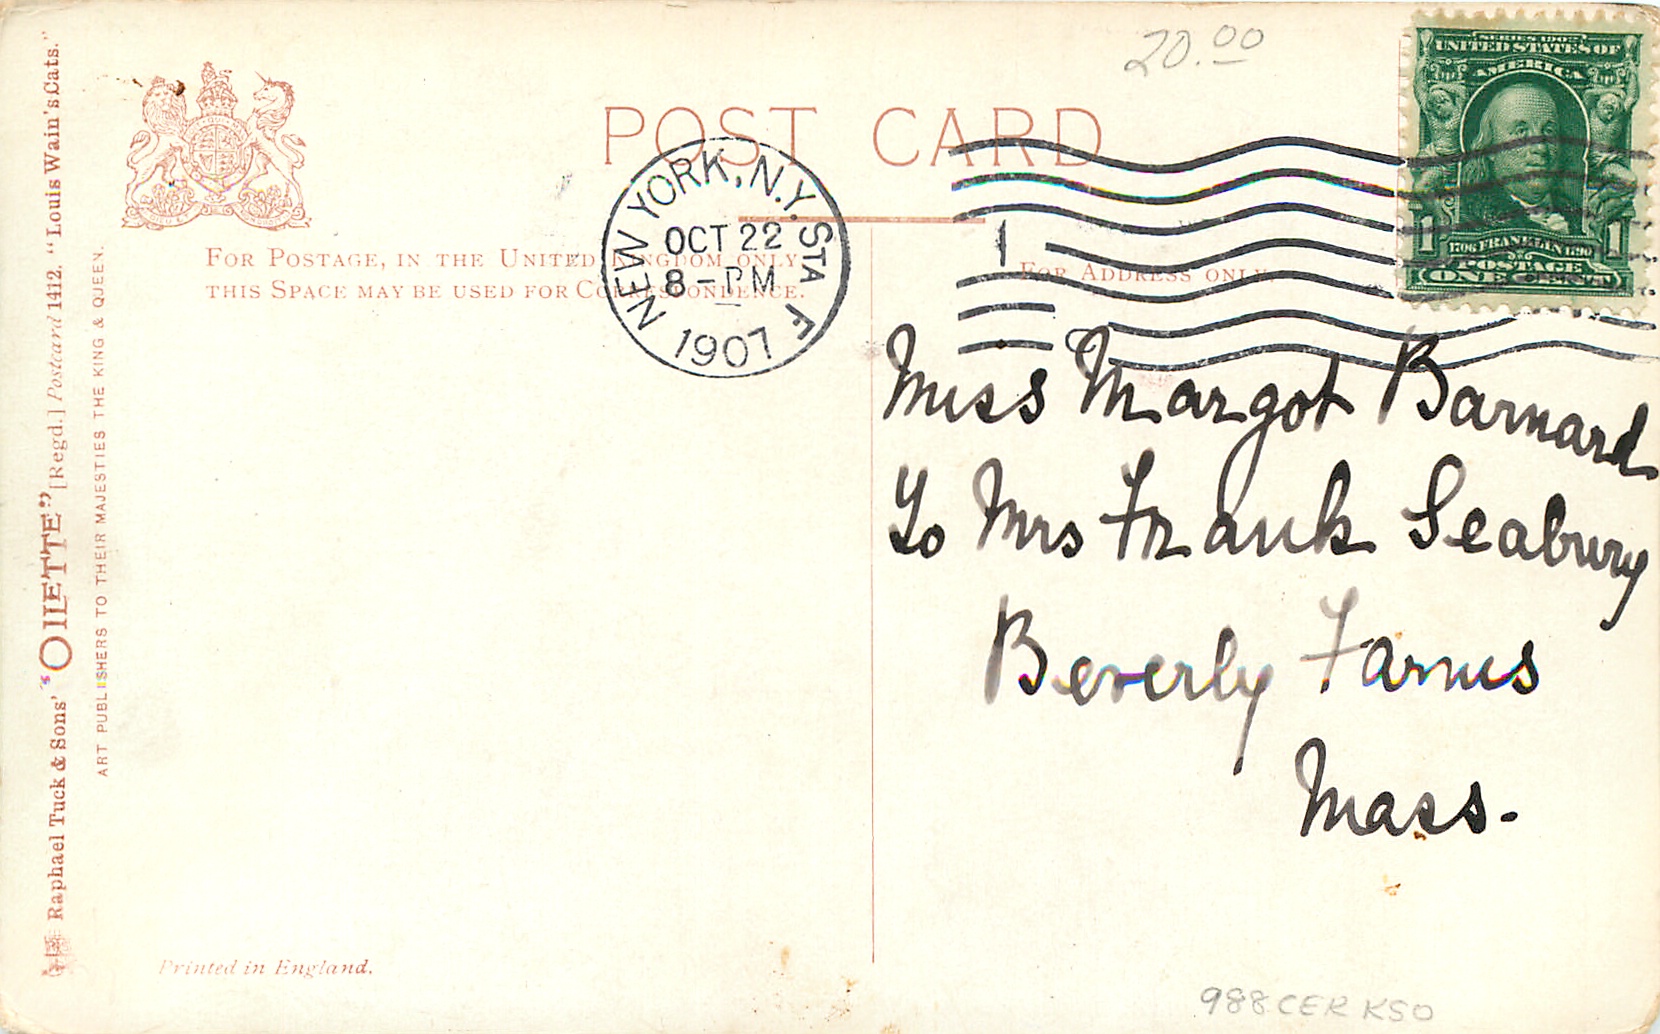 20.00
POST CARD
SERIES 1902
UNITED STATES OF
AMERICA
1 1
1706 FRANKLIN 1790
POSTAGE
ONE
NEW YORK, N.Y. STA F
OCT 22
8-PM
1907
1
FOR POSTAGE, IN THE UNITED KINGDOM ONLY,
THIS SPACE MAY BE USED FOR CORRESPONDENCE.
FOR ADDRESS ONLY.
Miss Margot Barnard
To Mrs Frank Seabury
Beverly Farms
Mass.
Raphael Tuck & Sons' "OILETTE" [Regd.] Postcard 1412. "Louis Wain's Cats."
ART PUBLISHERS TO THEIR MAJESTIES THE KING & QUEEN.
Printed in England.
988CERKSO